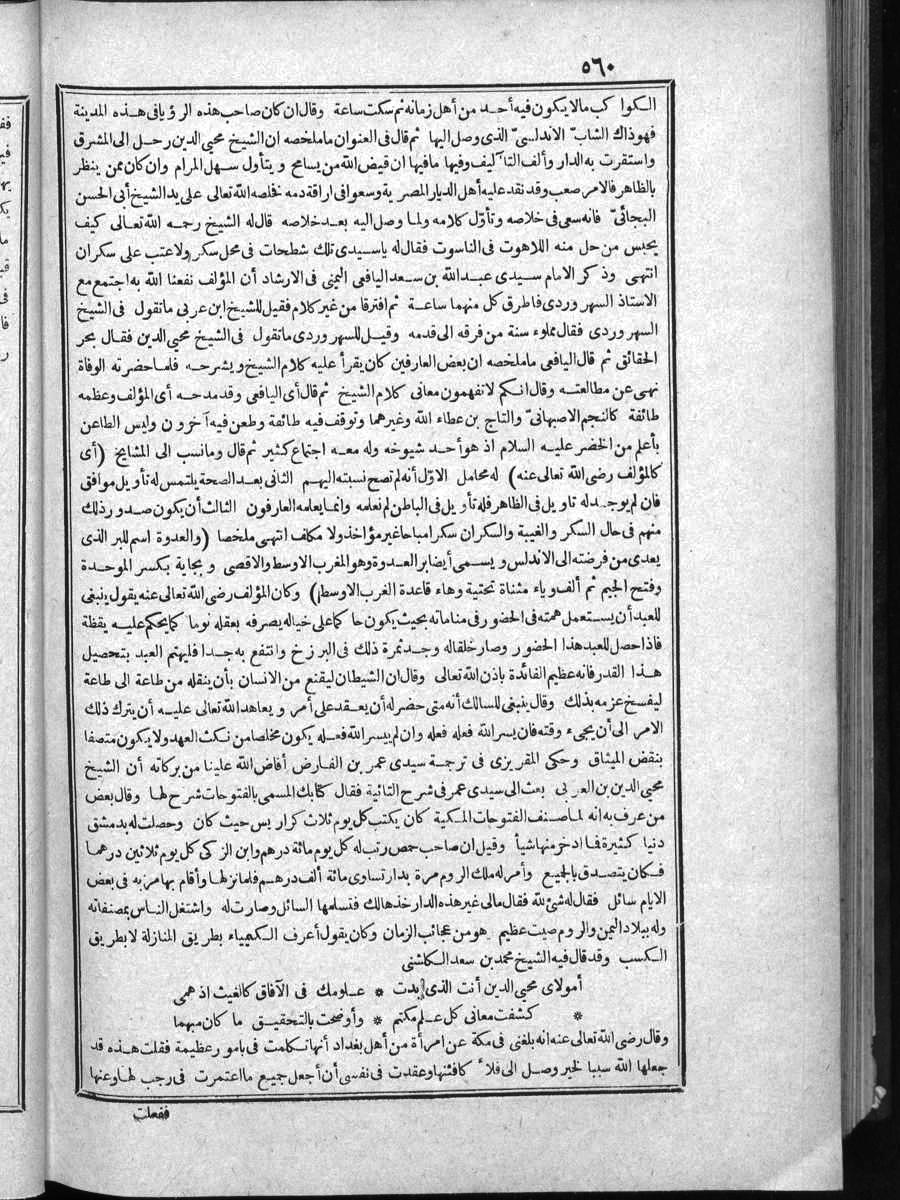 ٥٦٠
الكواكب مالا يكون فيه أحد من أهل زمانه ثم سكت ساعة وقال ان كان صاحب هذه الرؤيا في هذه المدينة
فهو ذاك الشاب الاندلسي الذى وصل اليها ثم قال فى العنوان ما ملخصه ان الشيخ محيي الدين رحل الى المشرق
واستقرت به الدار وألف التآليف وفيها مافيها ان قيض الله من يسامح ويتأول سهل المرام وان كان ممن ينظر
بالظاهر فالامر صعب وقد نقد عليه أهل الديار المصرية وسعوا فى اراقة دمه فخلصه الله تعالى على يد الشيخ أبى الحسن
البجائىّ فانه سعى فى خلاصه وتأوّل كلامه ولما وصل اليه بعد خلاصه قال له الشيخ رحمه الله تعالى كيف
يحبس من حل منه اللاهوت فى الناسوت فقال له ياسيدى تلك شطحات فى محل سكر ولا عتب على سكران
انتهى وذكر الامام سيدى عبد الله بن سعد اليافعى اليمنى فى الارشاد أن المؤلف نفعنا الله به اجتمع مع
الاستاذ السهروردى فاطرق كل منهما ساعة ثم افترقا من غير كلام فقيل للشيخ ابن عربى ما تقول فى الشيخ
السهروردى فقال مملوء سنة من فرقه الى قدمه وقيل للسهروردى ما تقول فى الشيخ محيي الدين فقال بحر
الحقائق ثم قال اليافعى ما ملخصه ان بعض العارفين كان يقرأ عليه كلام الشيخ ويشرحه فلما حضرته الوفاة
نهى عن مطالعته وقال انكم لا تفهمون معانى كلام الشيخ ثم قال أى اليافعى وقد مدحه أى المؤلف وعظمه
طائفة كالنجم الاصبهانىّ والتاج بن عطاء الله وغيرهما وتوقف فيه طائفة وطعن فيه آخرون وليس الطاعن
بأعلم من الخضر عليه السلام اذ هو أحد شيوخه وله معه اجتماع كثير ثم قال وما نسب الى المشايخ (أى
كالمؤلف رضى الله تعالى عنه) له محامل الاوّل أنه لم تصح نسبته اليهم الثانى بعد الصحة يلتمس له تأويل موافق
فان لم يوجد له تاويل فى الظاهر فله تأويل فى الباطن لم نعلمه وانما يعلمه العارفون الثالث أن يكون صدور ذلك
منهم فى حال السكر والغيبة والسكران سكرا مباحا غير مؤاخذ ولا مكلف انتهى ملخصا (والعدوة اسم للبر الذى
يعدى من فرضته الى الاندلس ويسمى أيضا بر العدوة وهو المغرب الاوسط والاقصى وبجاية بكسر الموحدة
وفتح الجيم ثم ألف وياء مثناة تحتية وهاء قاعدة الغرب الاوسط) وكان المؤلف رضى الله تعالى عنه يقول ينبغى
للعبد أن يستعمل همته فى الحضور فى مناماته بحيث يكون حاكما على خياله يصرفه بعقله نوما كما يحكم عليه يقظة
فاذا حصل للعبد هذا الحضور وصار خلقا له وجد ثمرة ذلك فى البرزخ وانتفع به جدا فليهتم العبد بتحصيل
هذا القدر فانه عظيم الفائدة باذن الله تعالى وقال ان الشيطان ليقنع من الانسان بأن ينقله من طاعة الى طاعة
ليفسخ عزمه بذلك وقال ينبغى للسالك أنه متى حضر له أن يعقد على أمر ويعاهد الله تعالى عليه أن يترك ذلك
الامر الى أن يجىء وقته فان يسر الله فعله فعله وان لم ييسر الله فعله يكون مخلصا من نكث العهد ولا يكون متصفا
بنقض الميثاق وحكى المقريزى فى ترجمة سيدى عمر بن الفارض أفاض الله علينا من بركاته أن الشيخ
محيي الدين بن العربى بعث الى سيدى عمر فى شرح التائية فقال كتابك المسمى بالفتوحات شرح لها وقال بعض
من عرف به انه لما صنف الفتوحات المكية كان يكتب كل يوم ثلاث كراريس حيث كان وحصلت له بدمشق
دنيا كثيرة فما ادخر منها شيأ وقيل ان صاحب حمص رتب له كل يوم مائة درهم وابن الزكى كل يوم ثلاثين درهما
فكان يتصدق بالجميع وأمر له ملك الروم مرة بدار تساوى مائة ألف درهم فلما نزلها وأقام بها مر به فى بعض
الايام سائل فقال له شئ لله فقال مالى غير هذه الدار خذها لك فتسلمها السائل وصارت له واشتغل الناس بمصنفاته
وله ببلاد اليمن والروم صيت عظيم هو من عجائب الزمان وكان يقول أعرف الكيمياء بطريق المنازلة لا بطريق
الكسب وقد قال فيه الشيخ محمد بن سعد الكاشنى
أمولاى محيي الدين أنت الذى بدت * علومك فى الآفاق كالغيث اذ همى
كشفت معانى كل علم مكتم * وأوضحت بالتحقيق ما كان مبهما *
وقال رضى الله تعالى عنه انه بلغنى فى مكة عن امرأة من أهل بغداد أنها تكلمت فى بامور عظيمة فقلت هذه قد
جعلها الله سببا لخير وصل الى فلأ كافئنها وعقدت فى نفسى أن أجعل جميع ما اعتمرت فى رجب لها وعنها
ففعلت